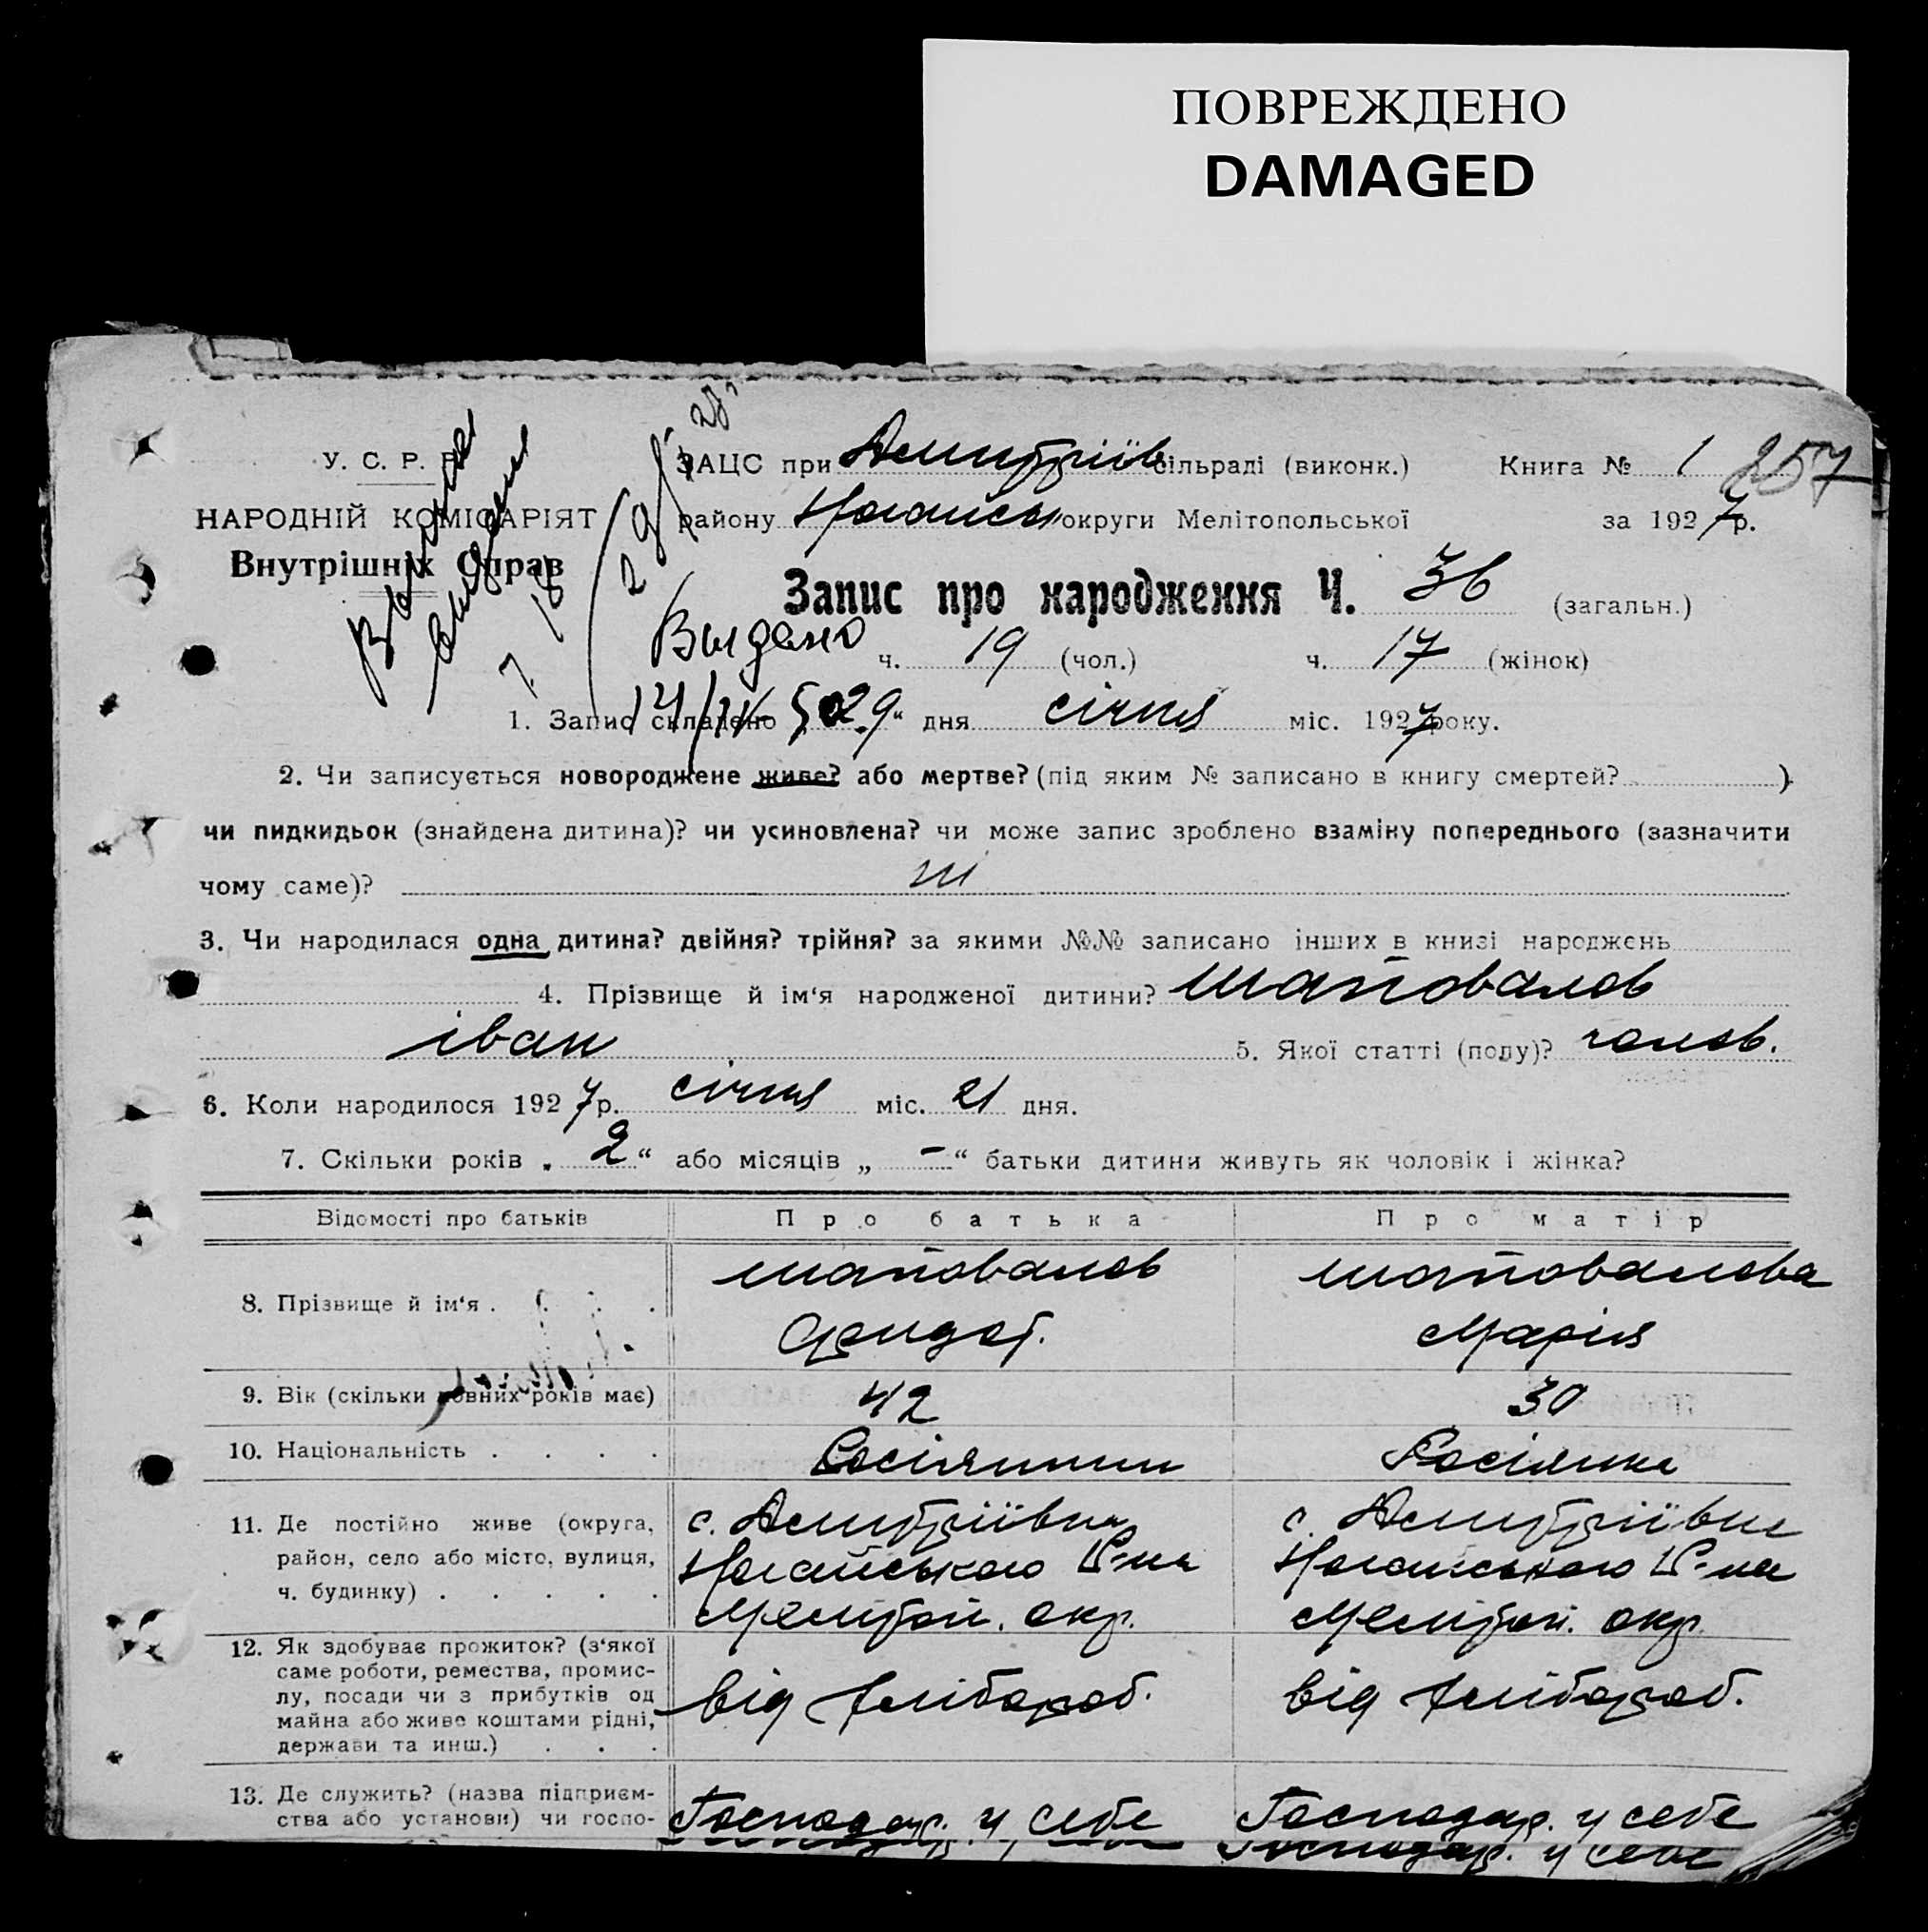 ПОВРЕЖДЕНО
DAMAGED
У. С. Р. Р.
НАРОДНІЙ КОМІСАРІЯТ
Внутрішніх Справ
ЗАЦС при Дмитріїв сільраді (виконк.) Книга № 1 257
району Ногайськ округи Мелітопольської за 1927 р.
Запис про народження Ч. 36 (загальн.)
Выдано
ч. 19 (чол.) ч. 17 (жінок)
1. Запис складено 29“ дня січня міс. 1927 року.
2. Чи записується новороджене живе? або мертве? (під яким № записано в книгу смертей? )
чи пидкидьок (знайдена дитина)? чи усиновлена? чи може запис зроблено взаміну попереднього (зазначити
чому саме)? ні
3. Чи народилася одна дитина? двійня? трійня? за якими №№ записано інших в книзі народжень
4. Прізвище й ім‘я народженої дитини? Шаповалов
іван 5. Якої статті (полу)? чолов.
6. Коли народилося 1927 р. січня міс. 21 дня.
7. Скільки років „ 2 “ або місяців „ – “ батьки дитини живуть як чоловік і жінка?
Відомості про батьків Про батька Про матір
8. Прізвище й ім‘я . . . . Шаповалов Шаповалова
Марія
9. Вік (скільки повних років має) 42 30
10. Національність . . . . Росіянин Росіянка
11. Де постійно живе (округа, с. Дмитріївка с. Дмитріївка
район, село або місто, вулиця, Ногайського Р-на Ногайського Р-на
ч. будинку) . . . . . Мелітоп. окр. Мелітоп. окр.
12. Як здобуває прожиток? (з‘якої
саме роботи, ремества, промис-
лу, посади чи з прибутків од від хлібороб. від хлібороб.
майна або живе коштами рідні,
держави та инш.) . . .
13. Де служить? (назва підприєм-
ства або установи) чи госпо- Господар. у себе Господар. у себе
Господар. у себе